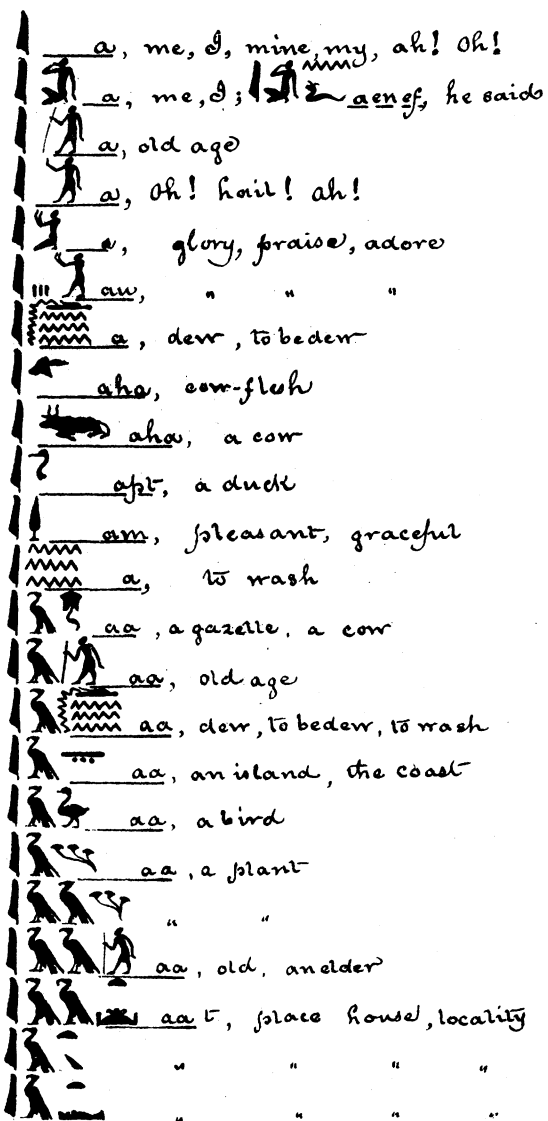 a, me, I, mine, my, ah! Oh!
a, me, I; aenef, he said
a, old age
a, Oh! hail! ah!
a, glory, praise, adore
au, " " "
a, dew, to bedew
aha, cow-flesh
aha, a cow
apt, a duck
am, pleasant, graceful
a, to wash
aa, a gazelle, a cow
aa, old age
aa, dew, to bedew, to wash
aa, an island, the coast
aa, a bird
aa, a plant
" "
aa, old, an elder
aat, place house, locality
" " " "
" " " "